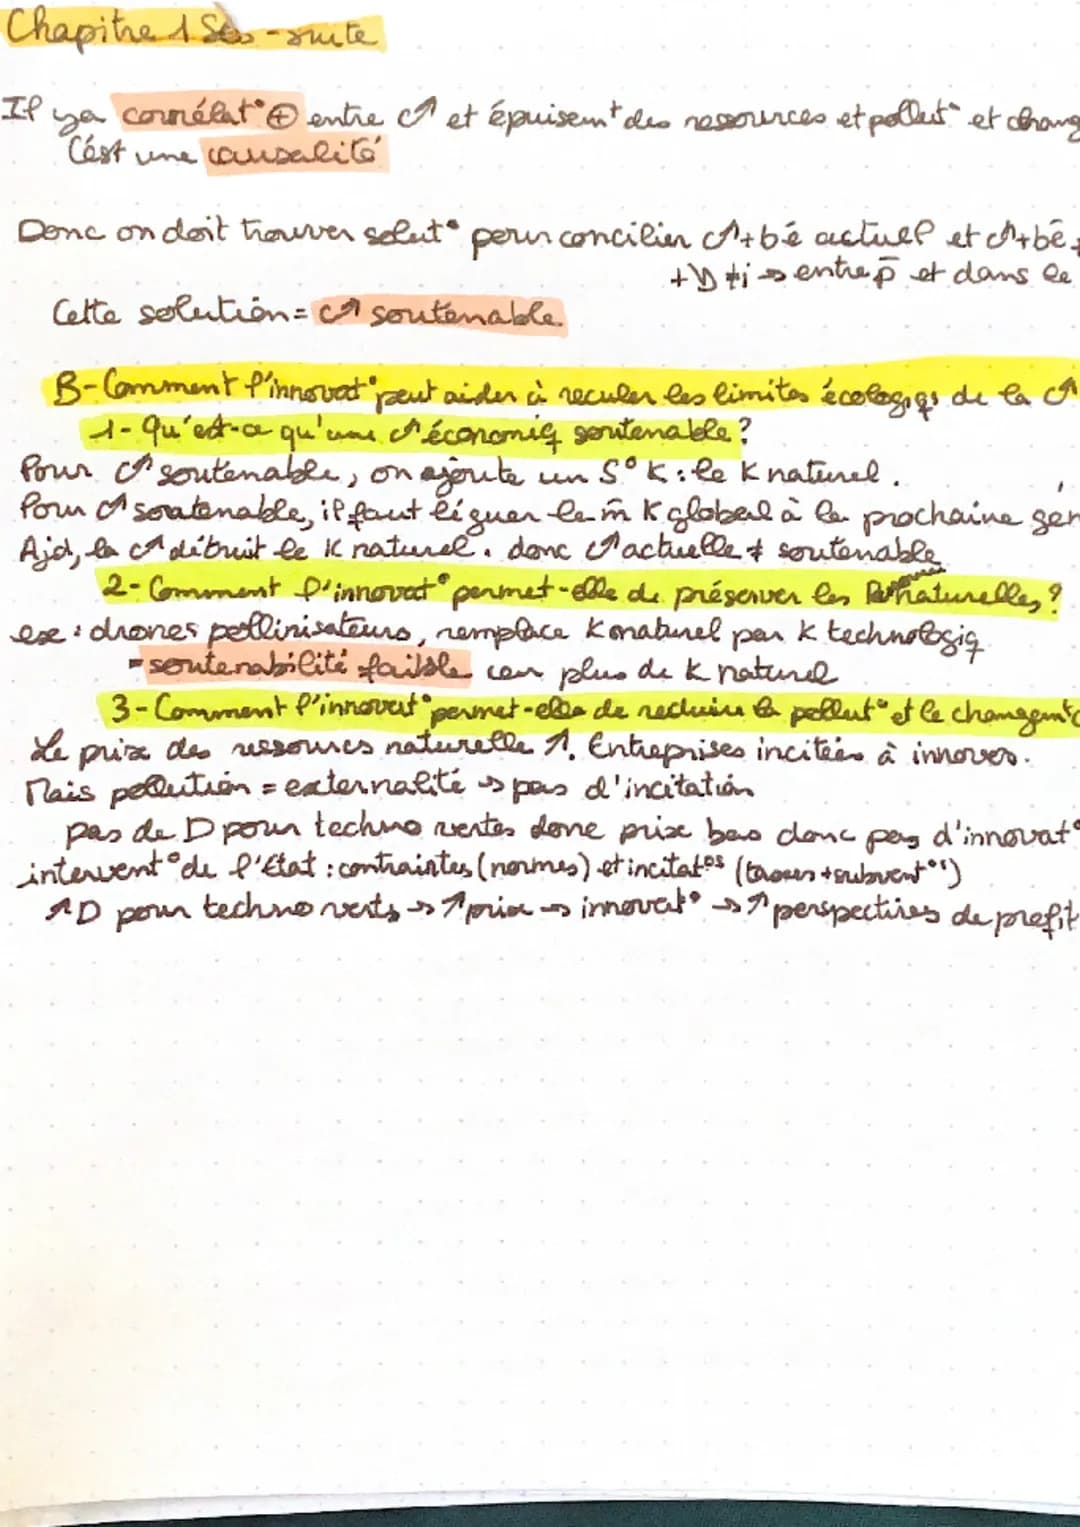 Chapitre 1 Ses - suite
Il ya corrélat° ⊕ entre c↗ et épuisem^t des ressources et pollut° et chang
C'est une causalité
Donc on doit trouver solut° pour concilier c↗+bê actuel et c↗+bê
+↘ ≠i → entre p̄ et dans le
Cette solution = c↗ soutenable
B- Comment l'innovat° peut aider à reculer les limites écologiqs de la c↗
1- Qu'est-ce qu'une c↗ économiq soutenable ?
Pour c↗ soutenable, on ajoute un 5° K : le K naturel.
Pour c↗ soutenable, il faut léguer le m̂ K global à la prochaine gén
Ajd, la c↗ détruit le K naturel. donc c↗ actuelle ≠ soutenable
2- Comment l'innovat° permet-elle de préserver les naturelles ?
exe : drones pollinisateurs, remplace K naturel par K technologiq
= soutenabilité faible car plus de K naturel
3- Comment l'innovat° permet-elle de réduire la pollut° et le changem^t c
Le prix des ressources naturelle ↗. Entreprises incitées à innover.
Mais pollution = externalité → pas d'incitation
pas de D pour techno vertes donc prix bas donc pas d'innovat°
intervent° de l'État : contraintes (normes) et incitat°s (taxes + subvent°s)
↗D pour techno verts → ↗prix → innovat° → ↗ perspectives de profit